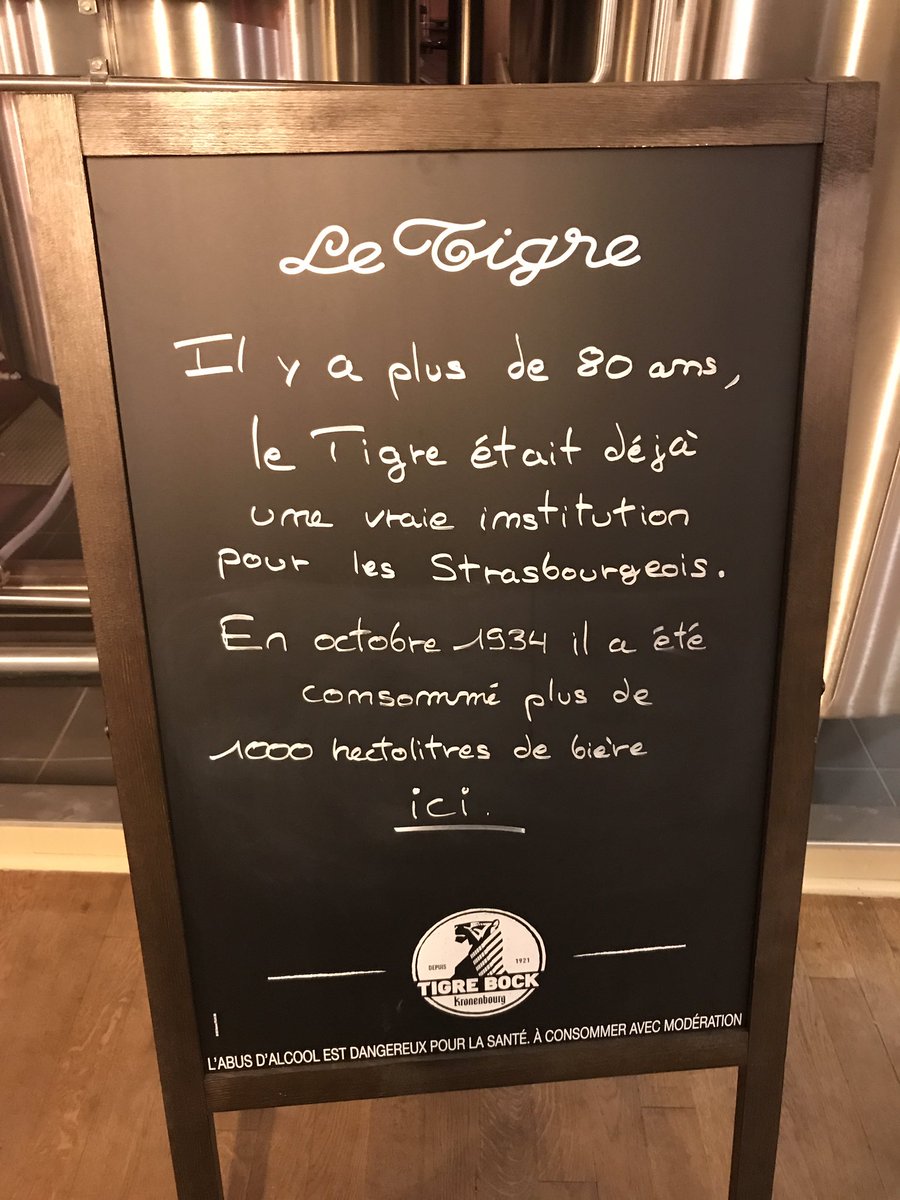 Le Tigre
Il y a plus de 80 ans,
le Tigre était déjà
une vraie institution
pour les Strasbourgeois.
En octobre 1934 il a été
consommé plus de
1000 hectolitres de bière
ici.
DEPUIS 1921
TIGRE BOCK
Kronenbourg
L'ABUS D'ALCOOL EST DANGEREUX POUR LA SANTÉ. À CONSOMMER AVEC MODÉRATION